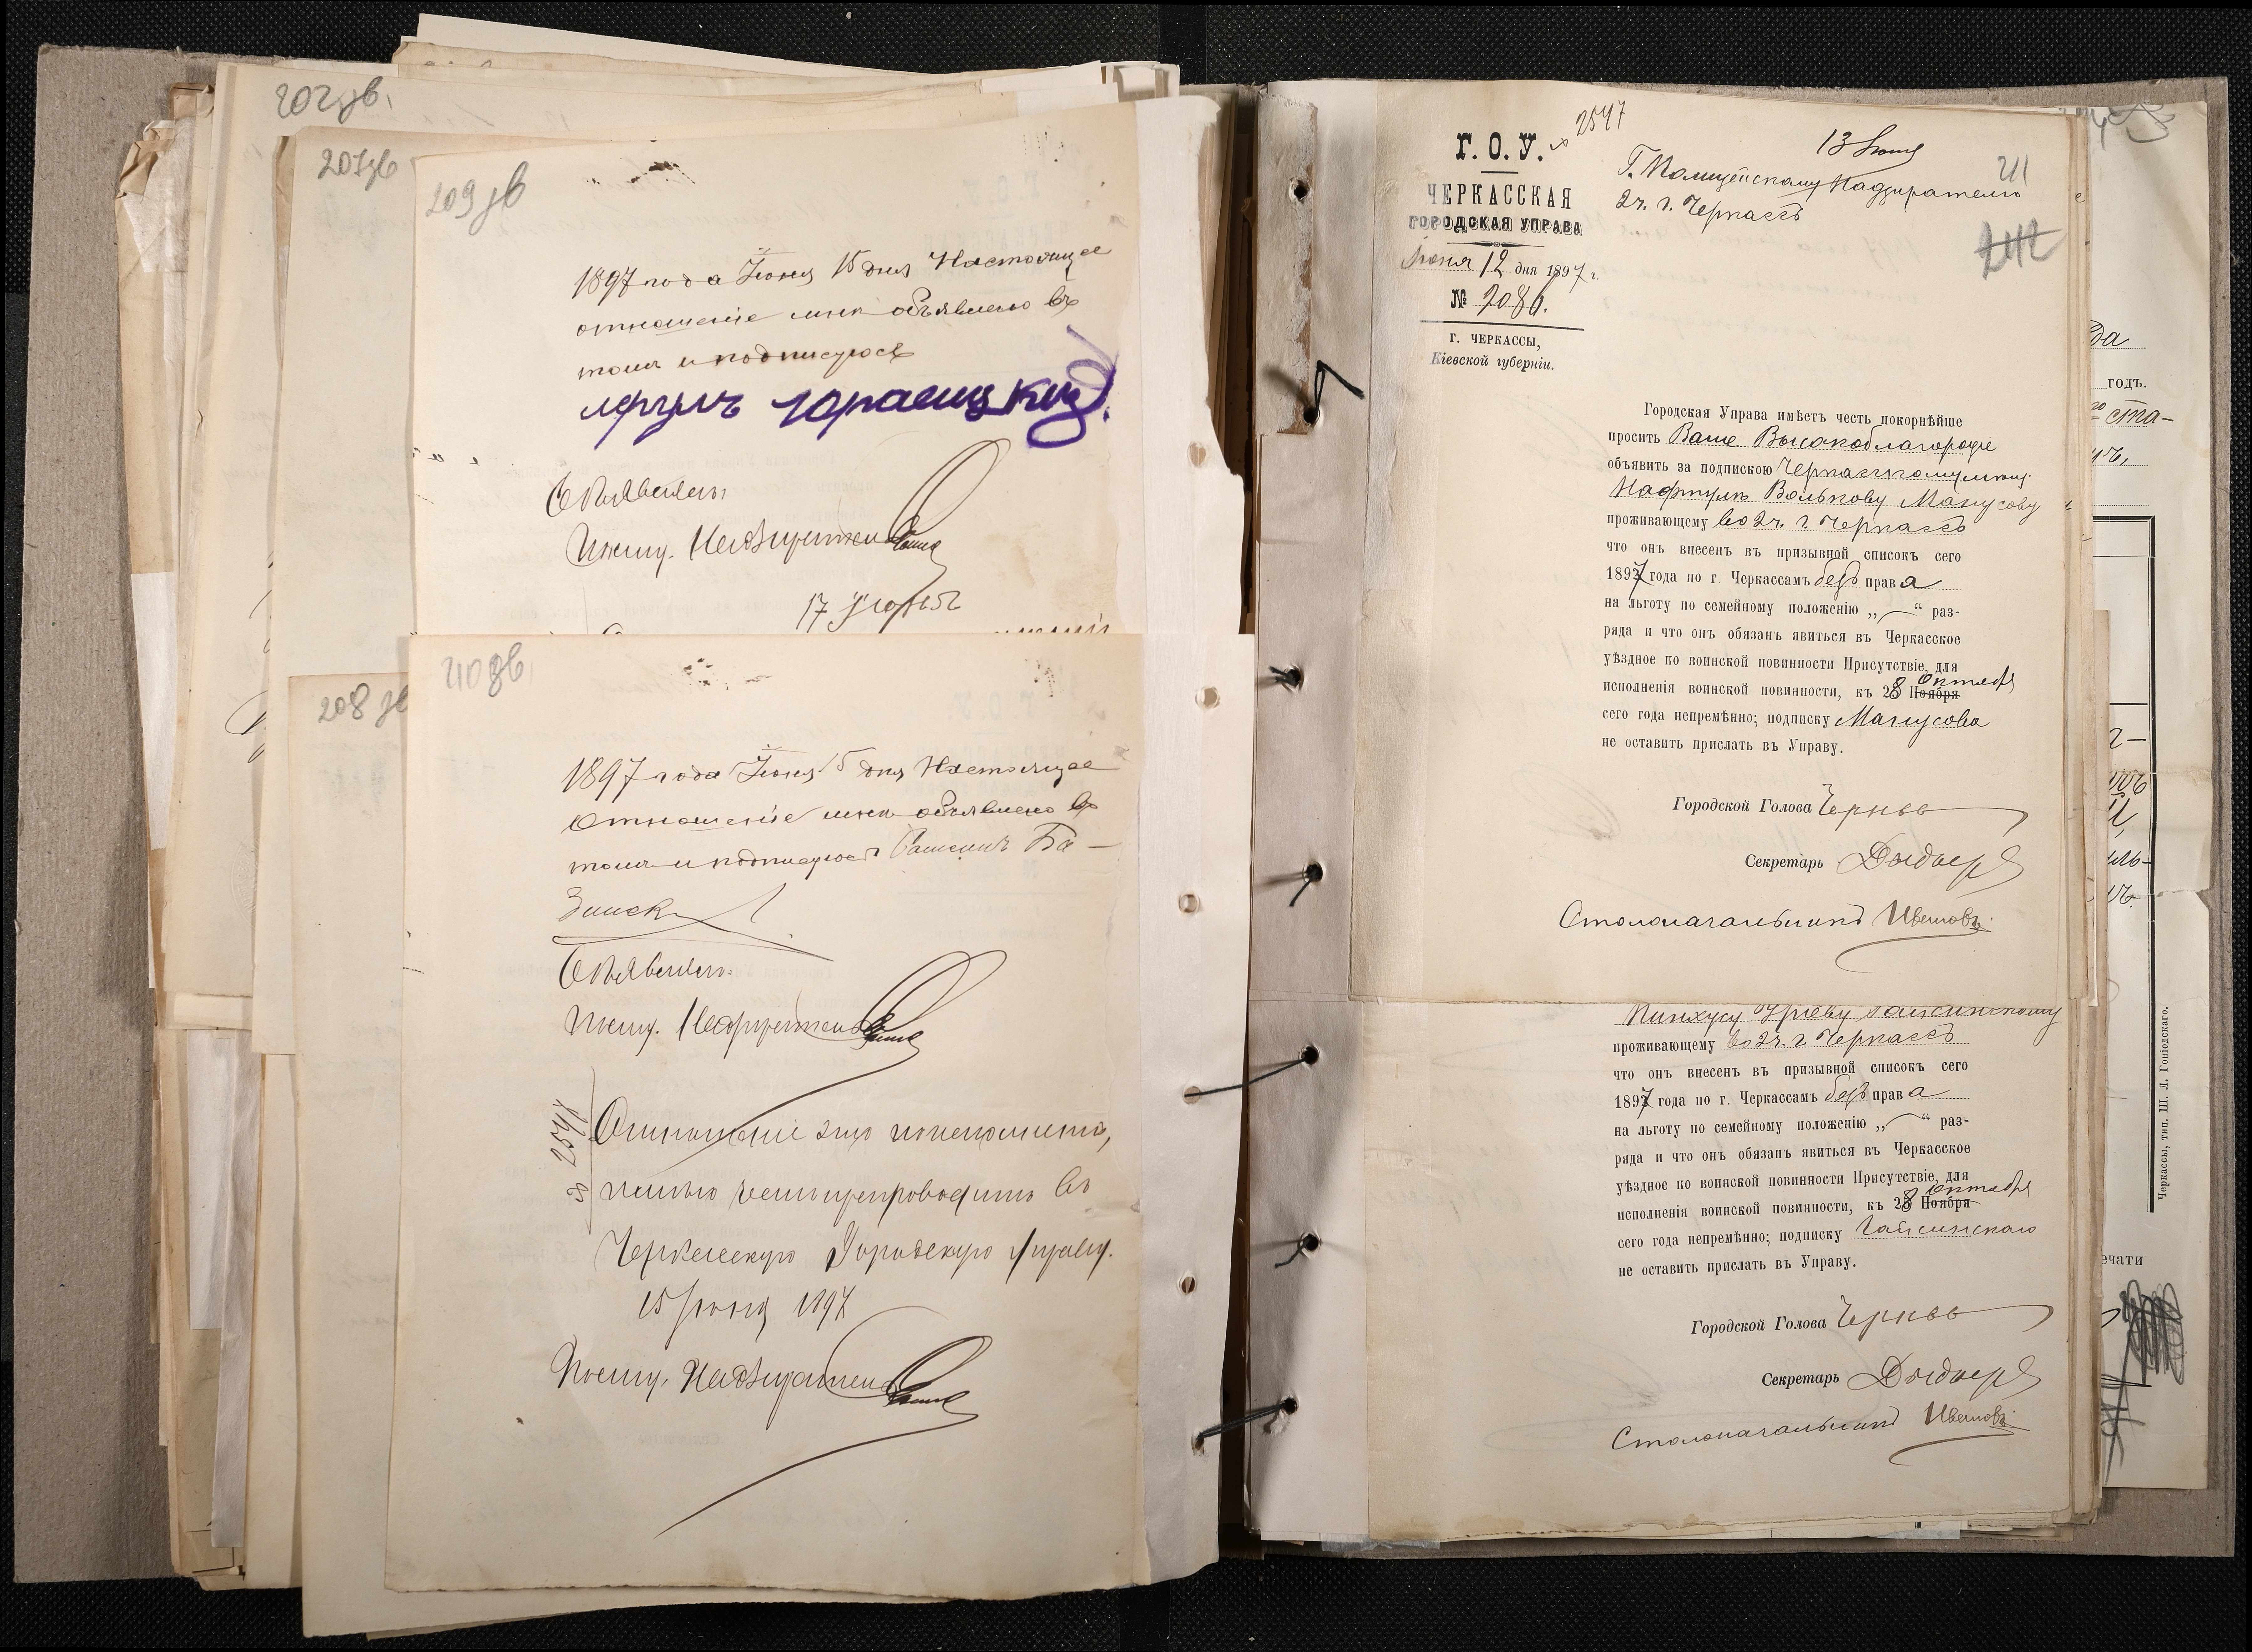 202 зв.
207 зв
209 зв
1897 года Июня 15 дня Настоящее
отношеніе мнѣ объявлено въ
томъ и подписуюсь
Объявилъ:
Полиц. Надзиратель
17
208 зв
210 зв.
1897 года Июня 15 дня Настоящее
отношеніе мнѣ объявлено въ
томъ и подписуюсь Ба-
зинск
Объявилъ:
Полиц. Надзиратель
№ 2547
Отношеніе это по исполненіи,
честь имѣю препроводить въ
Черкасскую Городскую Управу.
15 Июня 1897
Полиц. Надзиратель
Г. О. У.
№ 2547
13 Июня
211
242
ЧЕРКАССКАЯ
ГОРОДСКАЯ УПРАВА
Июня 12 дня 1897 г.
№ 2086.
г. ЧЕРКАССЫ,
Кіевской губерніи.
Г. Полицейскому Надзирателю
2 ч. г. Черкассъ
Городская Управа имѣетъ честь покорнѣйше
просить Ваше Высокоблагородіе
объявить за подпискою Черкасскому мѣщ.
Нафтулѣ Волькову Манусову
проживающему во 2 ч. г. Черкассъ
что онъ внесенъ въ призывной списокъ сего
1897 года по г. Черкассамъ безъ права
на льготу по семейному положенію „—“ раз-
ряда и что онъ обязанъ явиться въ Черкасское
уѣздное по воинской повинности Присутствіе, для
исполненія воинской повинности, къ 28 Ноября Октября
сего года непремѣнно; подписку Манусова
не оставить прислать въ Управу.
Городской Голова
Секретарь
Столоначальникъ Ивановъ
Пинхусу Уріеву Гайсинскому
проживающему во 2 ч. г. Черкассъ
что онъ внесенъ въ призывной списокъ сего
1897 года по г. Черкассамъ безъ права
на льготу по семейному положенію „—“ раз-
ряда и что онъ обязанъ явиться въ Черкасское
уѣздное по воинской повинности Присутствіе, для
исполненія воинской повинности, къ 28 Ноября Октября
сего года непремѣнно; подписку Гайсинскаго
не оставить прислать въ Управу.
Городской Голова
Секретарь
Столоначальникъ Ивановъ
да
годъ.
го ста-
Черкассы, тип. Ш. Л. Гоніодскаго.
ечати